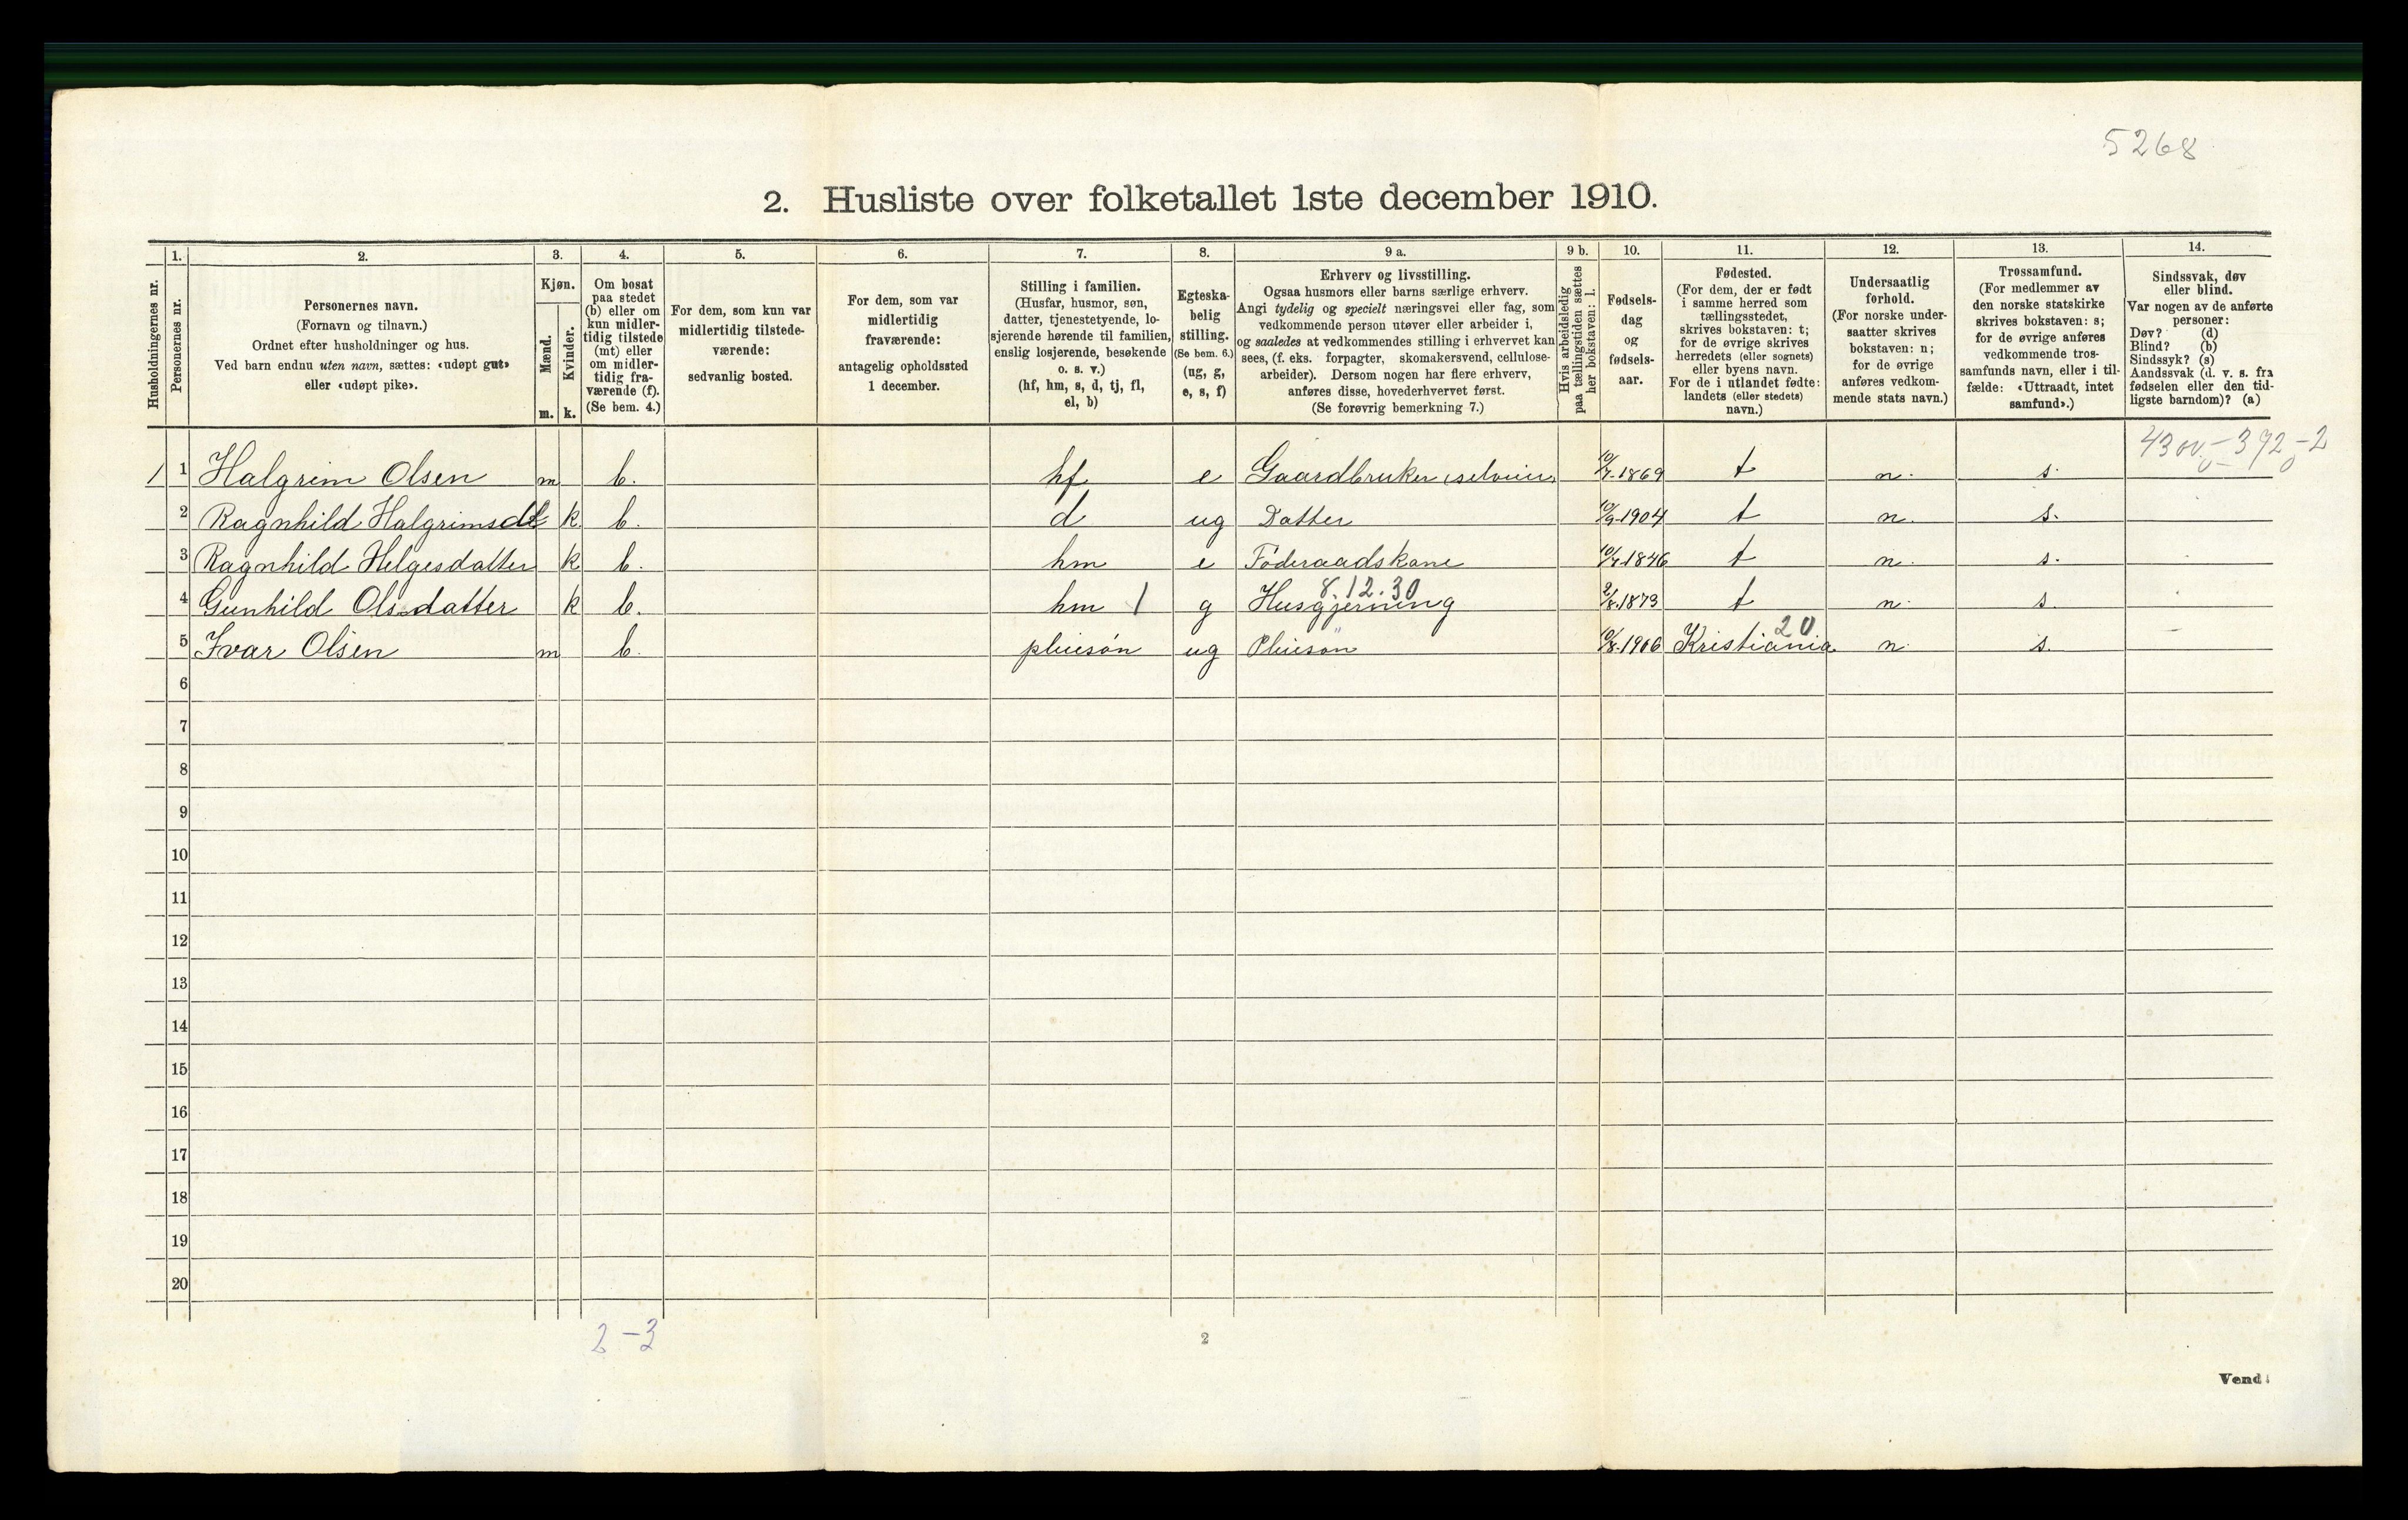 5268
2. Husliste over folketallet 1ste december 1910.
Husholdningernes nr.
1.
Personernes nr.
2.
Personernes navn.
(Fornavn og tilnavn.)
Ordnet efter husholdninger og hus.
Ved barn endnu uten navn, sættes: «udøpt gut»
eller «udøpt pike».
3.
Kjøn.
Mænd.
Kvinder.
m. k.
4.
Om bosat
paa stedet
(b) eller om
kun midler-
tidig tilstede
(mt) eller
om midler-
tidig fra-
værende (f).
(Se bem. 4.)
5.
For dem, som kun var
midlertidig tilstede-
værende:
sedvanlig bosted.
6.
For dem, som var
midlertidig
fraværende:
antagelig opholdssted
1 december.
7.
Stilling i familien.
(Husfar, husmor, søn,
datter, tjenestetyende, lo-
sjerende hørende til familien,
enslig losjerende, besøkende
o. s. v.)
(hf, hm, s, d, tj, fl,
el, b)
8.
Egteska-
belig
stilling.
(Se bem. 6.)
(ug, g,
e, s, f)
9 a.
Erhverv og livsstilling.
Ogsaa husmors eller barns særlige erhverv.
Angi tydelig og specielt næringsvei eller fag, som
vedkommende person utøver eller arbeider i,
og saaledes at vedkommendes stilling i erhvervet kan
sees, (f. eks. forpagter, skomakersvend, cellulose-
arbeider). Dersom nogen har flere erhverv,
anføres disse, hovederhvervet først.
(Se forøvrig bemerkning 7.)
9 b.
Hvis arbeidsledig
paa tællingstiden sættes
her bokstaven: l.
10.
Fødsels-
dag
og
fødsels-
aar.
11.
Fødested.
(For dem, der er født
i samme herred som
tællingsstedet,
skrives bokstaven: t;
for de øvrige skrives
herredets (eller sognets)
eller byens navn.
For de i utlandet fødte:
landets (eller stedets)
navn.)
12.
Undersaatlig
forhold.
(For norske under-
saatter skrives
bokstaven: n;
for de øvrige
anføres vedkom-
mende stats navn.)
13.
Trossamfund.
(For medlemmer av
den norske statskirke
skrives bokstaven: s;
for de øvrige anføres
vedkommende tros-
samfunds navn, eller i til-
fælde: «Uttraadt, intet
samfund».)
14.
Sindssvak, døv
eller blind.
Var nogen av de anførte
personer:
Døv? (d)
Blind? (b)
Sindssyk? (s)
Aandssvak (d. v. s. fra
fødselen eller den tid-
ligste barndom)? (a)
1 1 Halgrim Olsen m b. hf e Gaardbruker 10/7-1869 t n. s.
2 Ragnhild Halgrimsdt k b. d ug Datter 10/9-1904 t n. s.
3 Ragnhild Helgesdatter k b. hm e Föderaadskone 10/7-1846 t n. s.
8.12.30
4 Gunhild Olsdatter k b. hm 1 g Husgjerning 2/8-1873 t n. s.
20
5 Ivar Olsen m b. pleiesön ug Pleiesön 10/8-1906 Kristiania n. s.
6
7
8
9
10
11
12
13
14
15
16
17
18
19
20
2 - 3
2
Vend!